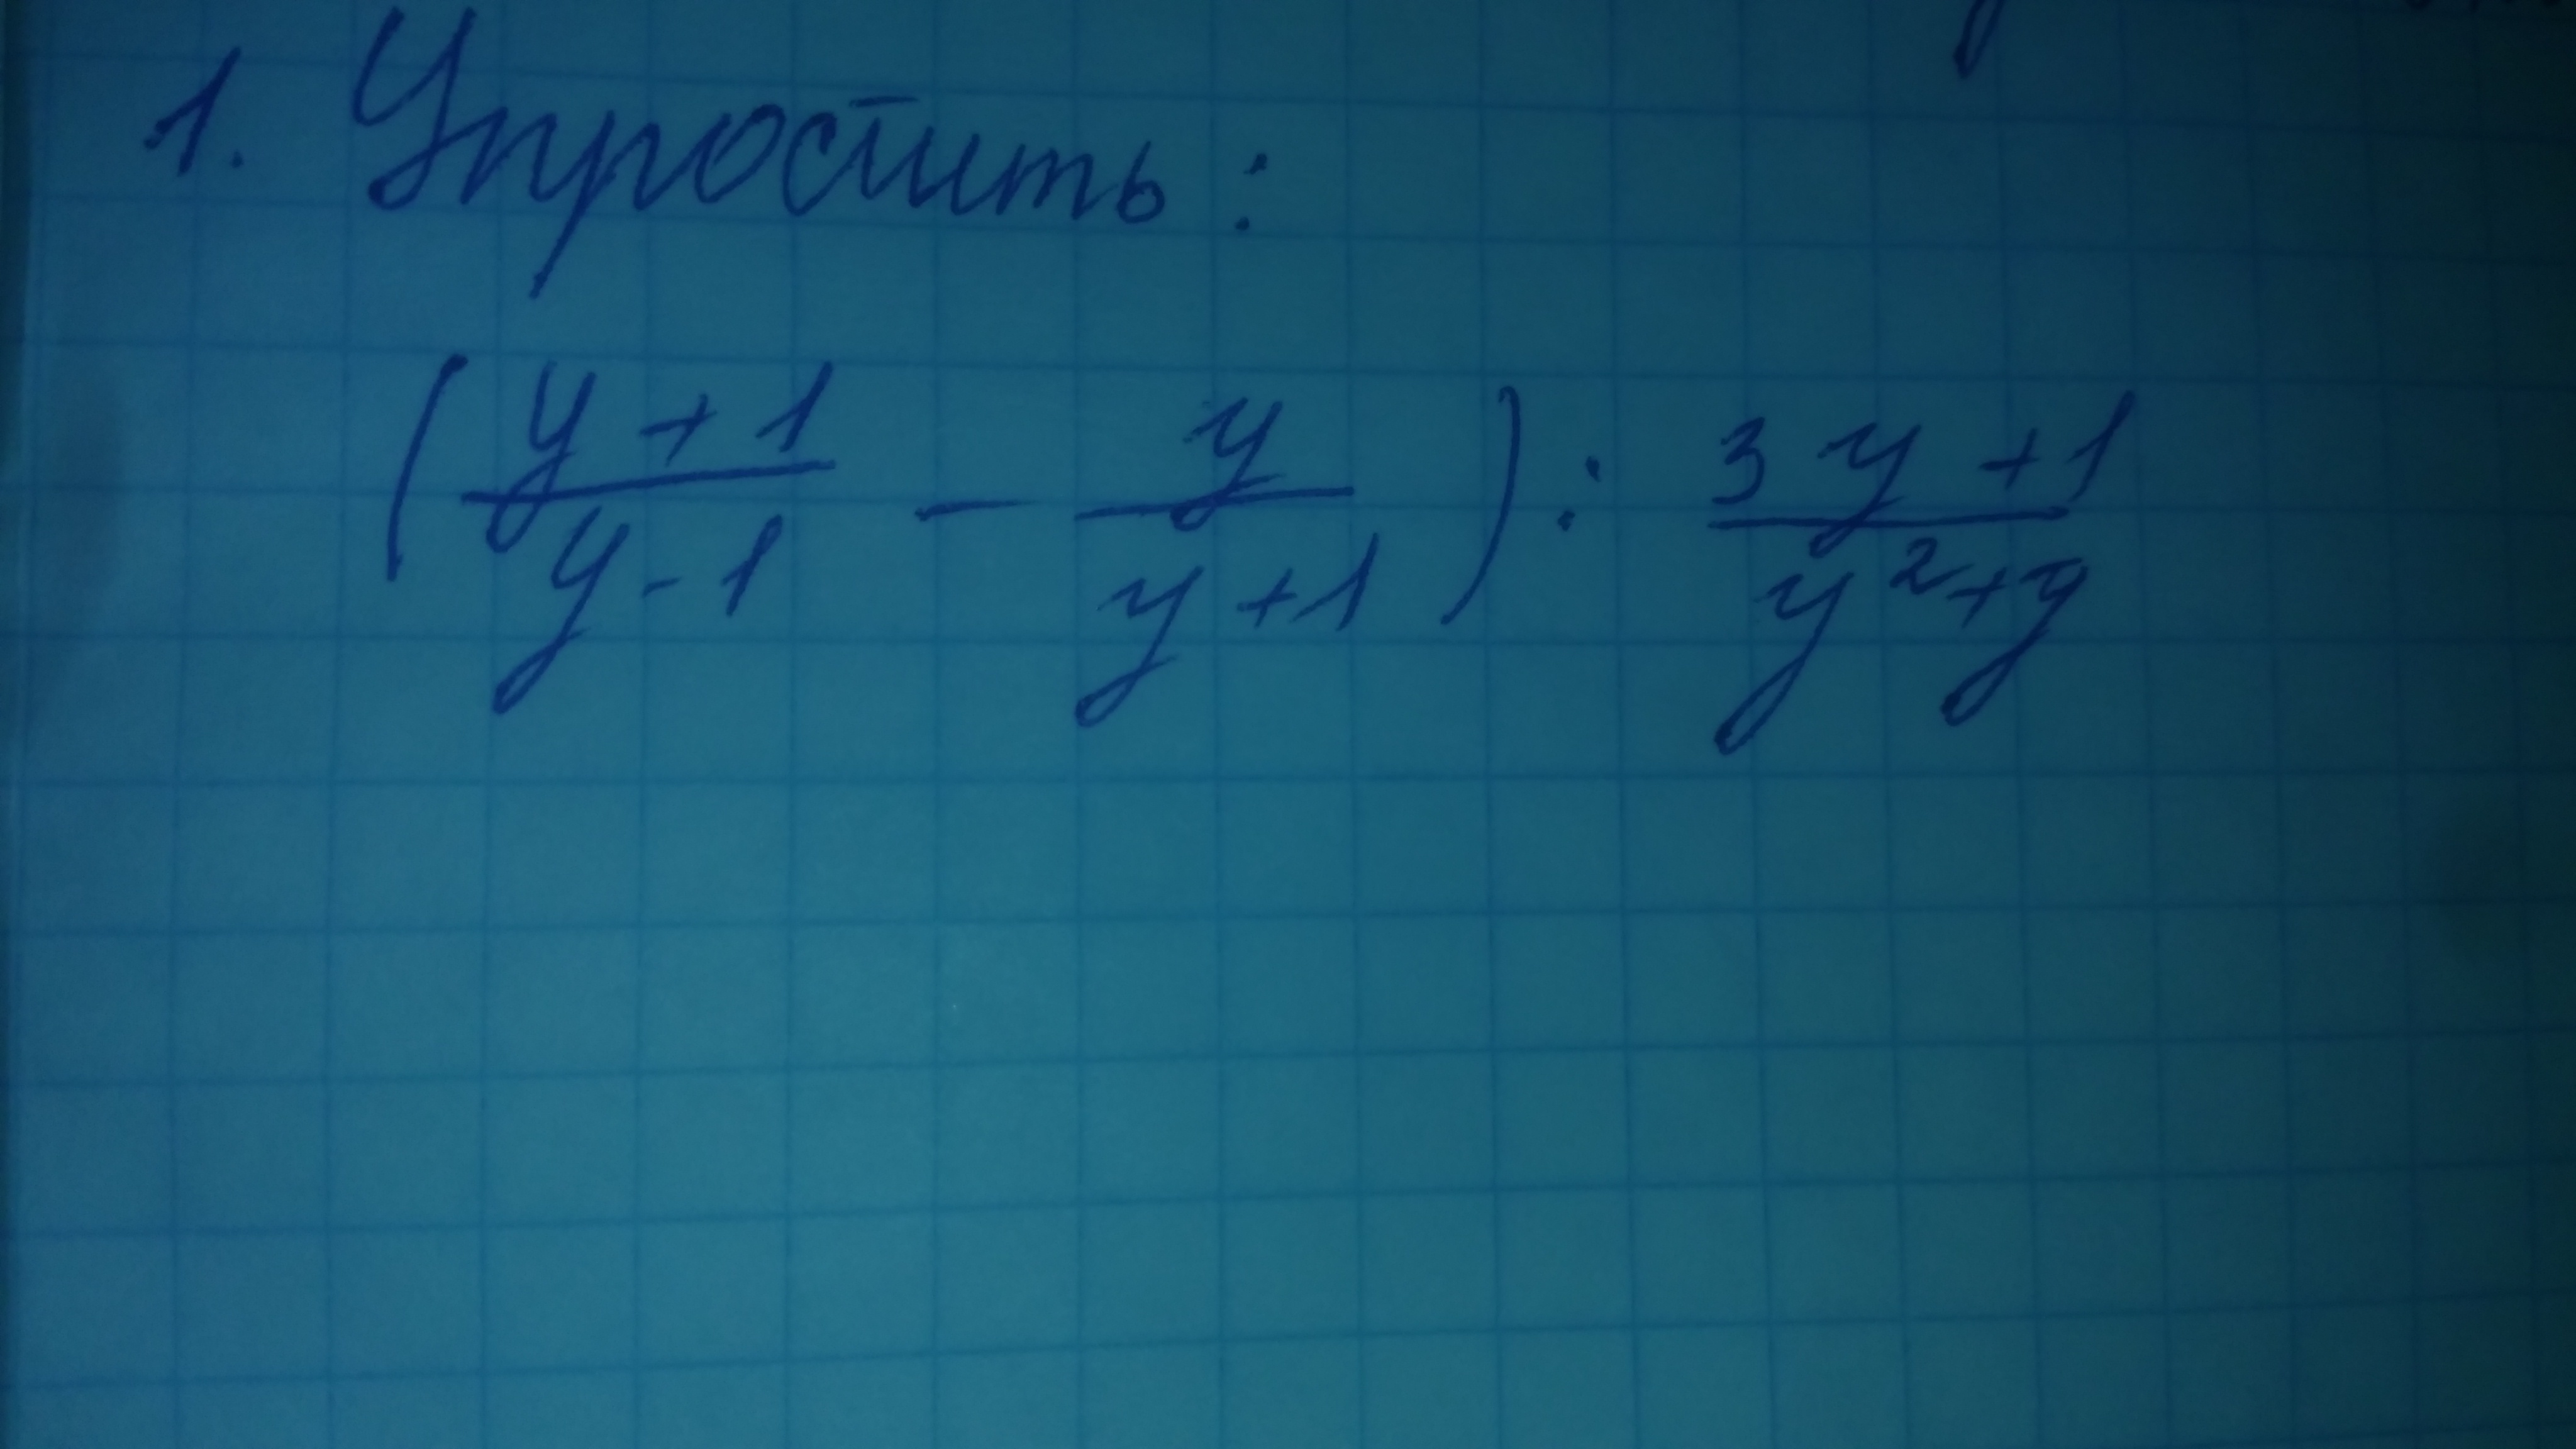 1. Упростить:
(y+1/y-1 - y/y+1) : 3y+1/y²+y